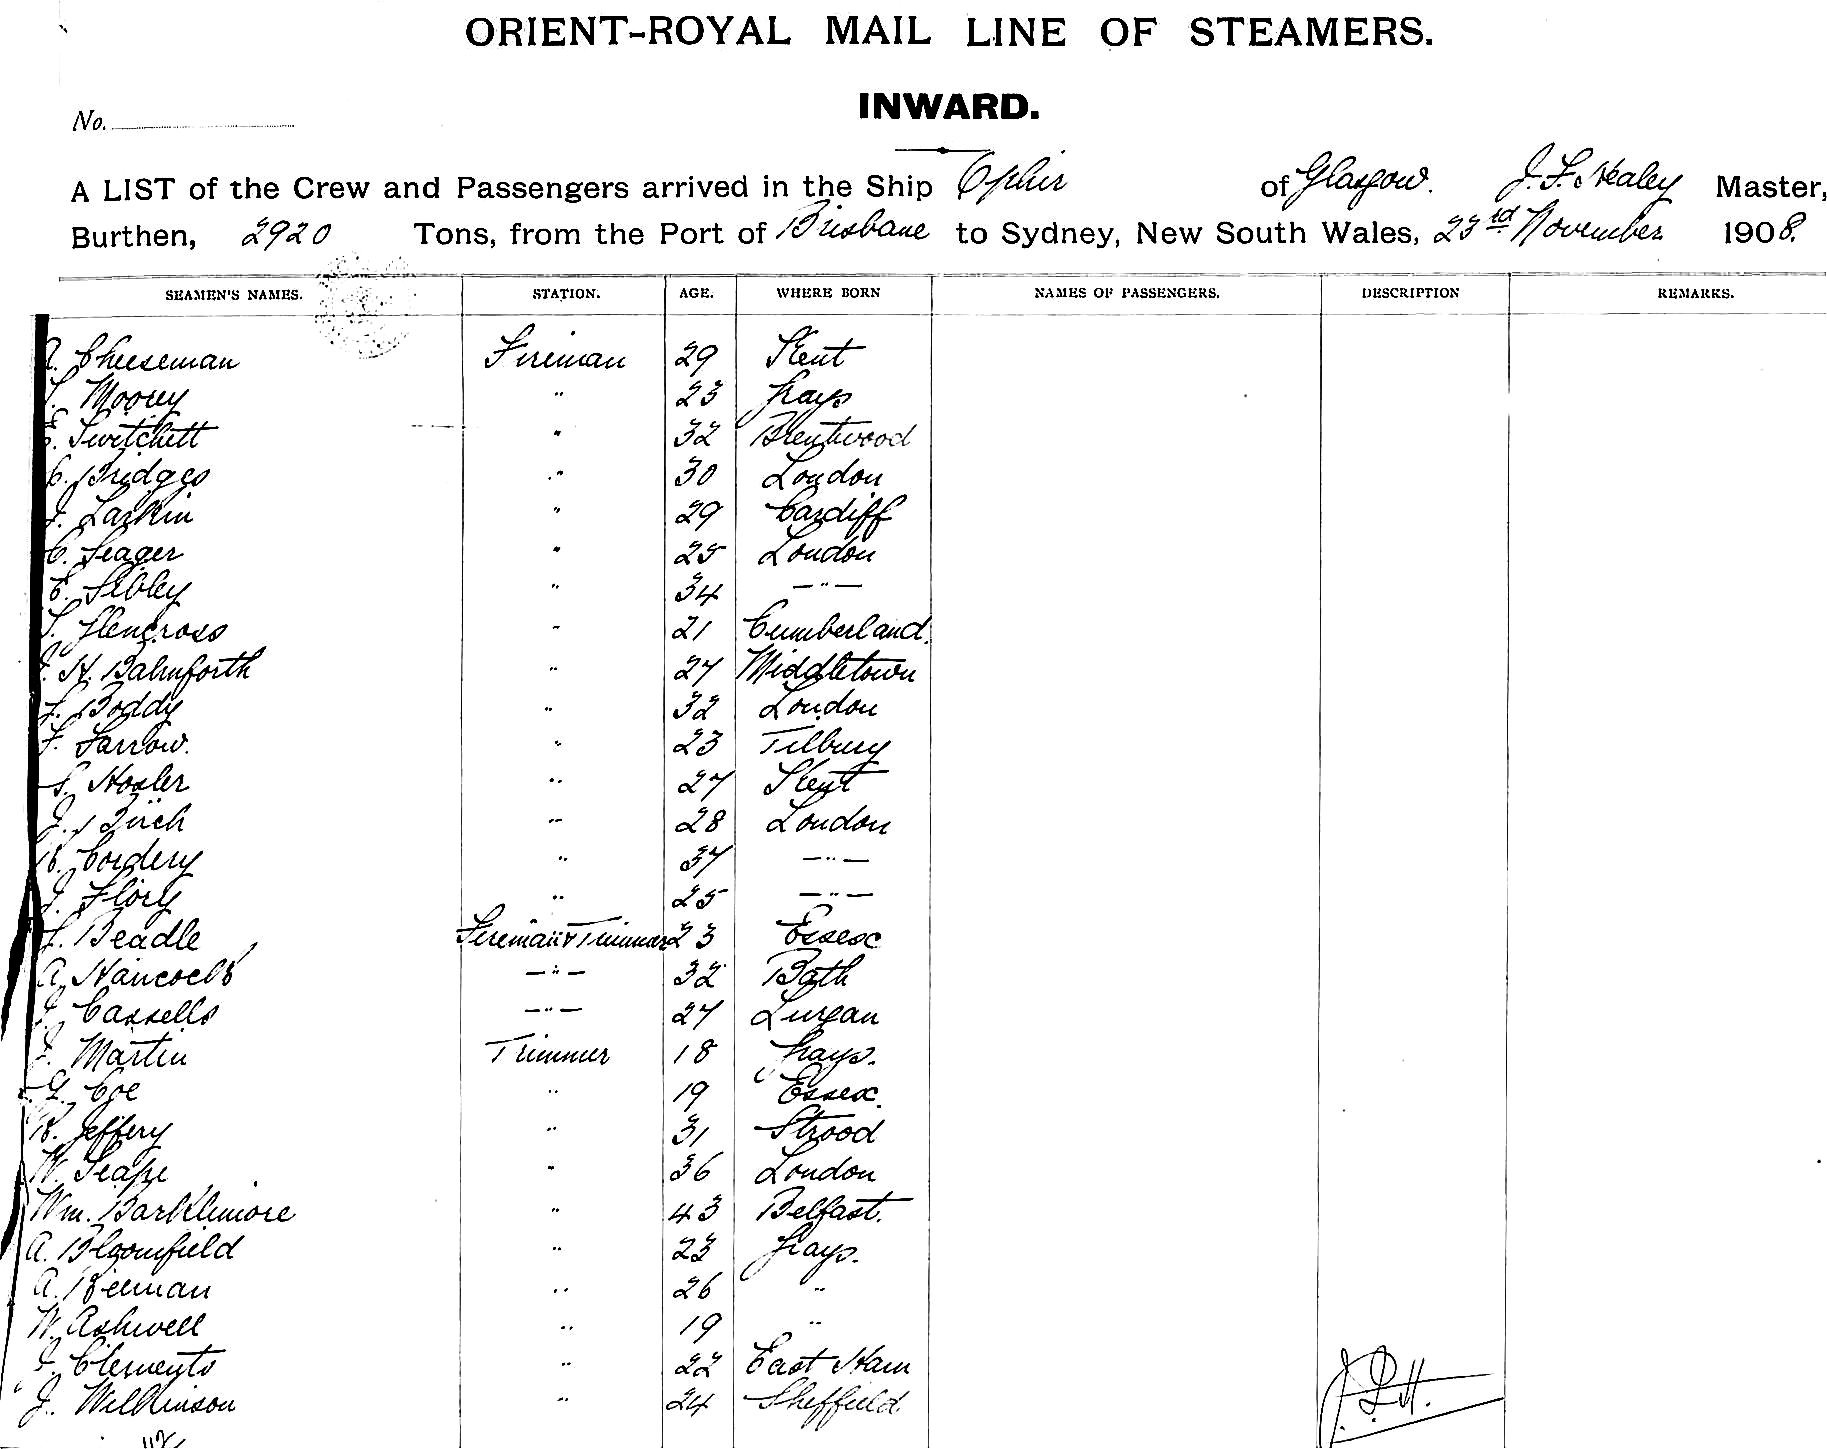 ORIENT-ROYAL MAIL LINE OF STEAMERS.
INWARD.
No.
A LIST of the Crew and Passengers arrived in the Ship Ophir of Glasgow. J. F. Healey Master,
Burthen, 2920 Tons, from the Port of Brisbane to Sydney, New South Wales, 23rd November 1908.
SEAMEN'S NAMES. STATION. AGE. WHERE BORN NAMES OF PASSENGERS. DESCRIPTION REMARKS.
A. Cheeseman Fireman 29 Kent
Moorey " 23 Grays
E. Twitchett " 32 Brentwood
C. Bridges " 30 London
J. Larkin " 29 Cardiff
C. Seager " 25 London
E. Sibley " 34 — " —
T. Glencross " 21 Cumberland.
H. Balmforth " 27 Middletown
Boddy " 32 London
F. Farrow. " 23 Tilbury
S. Hosler " 27 Kent
J. Birch " 28 London
Cordery " 37 — " —
J. Flory " 25 — " —
Beadle Fireman & Trimmer 23 Essex
A. Hancock — " — 32 Bath
J. Cassells — " — 27 Lurgan
Martin Trimmer 18 Grays.
G. Coe " 19 Essex.
R. Jeffery " 31 Strood
W. Seape " 36 London
Wm. Barklimore " 43 Belfast.
A. Bloomfield " 23 Grays.
A. Keeman " 26 "
W. Ashwell " 19 "
J. Clements " 22 East Ham
J. Wilkinson " 24 Sheffield
J.F.H.